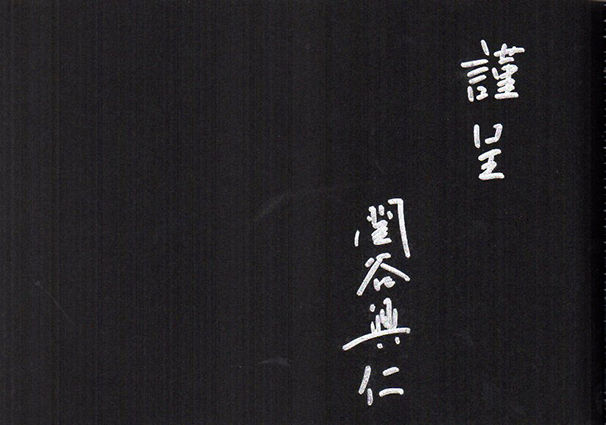 謹呈
関谷興仁